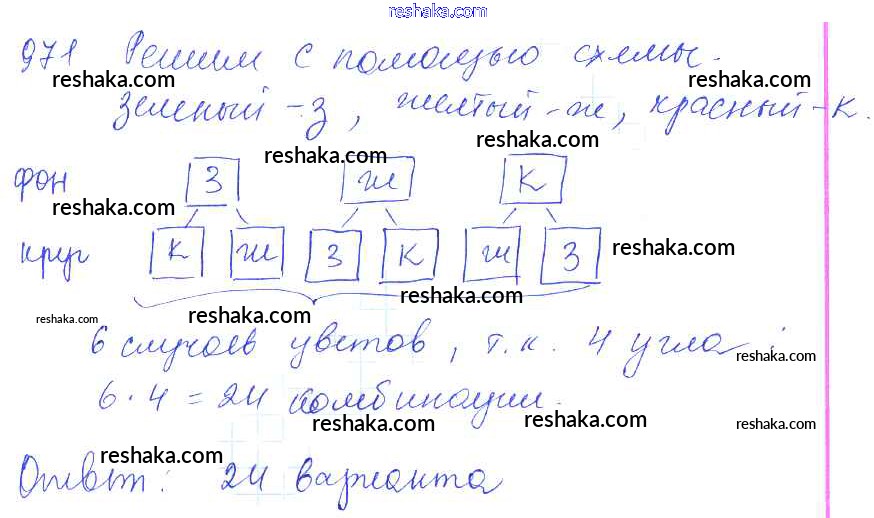 reshaka.com
971 Решим с помощью схемы.
reshaka.com reshaka.com
зеленый - з, желтый - ж, красный - к.
reshaka.com reshaka.com
фон З Ж К
reshaka.com
круг К Ж З К Ж З reshaka.com
reshaka.com
reshaka.com reshaka.com
6 случаев цветов, т.к. 4 угла :
reshaka.com
6 · 4 = 24 комбинации.
reshaka.com reshaka.com reshaka.com
reshaka.com
Ответ: 24 варианта